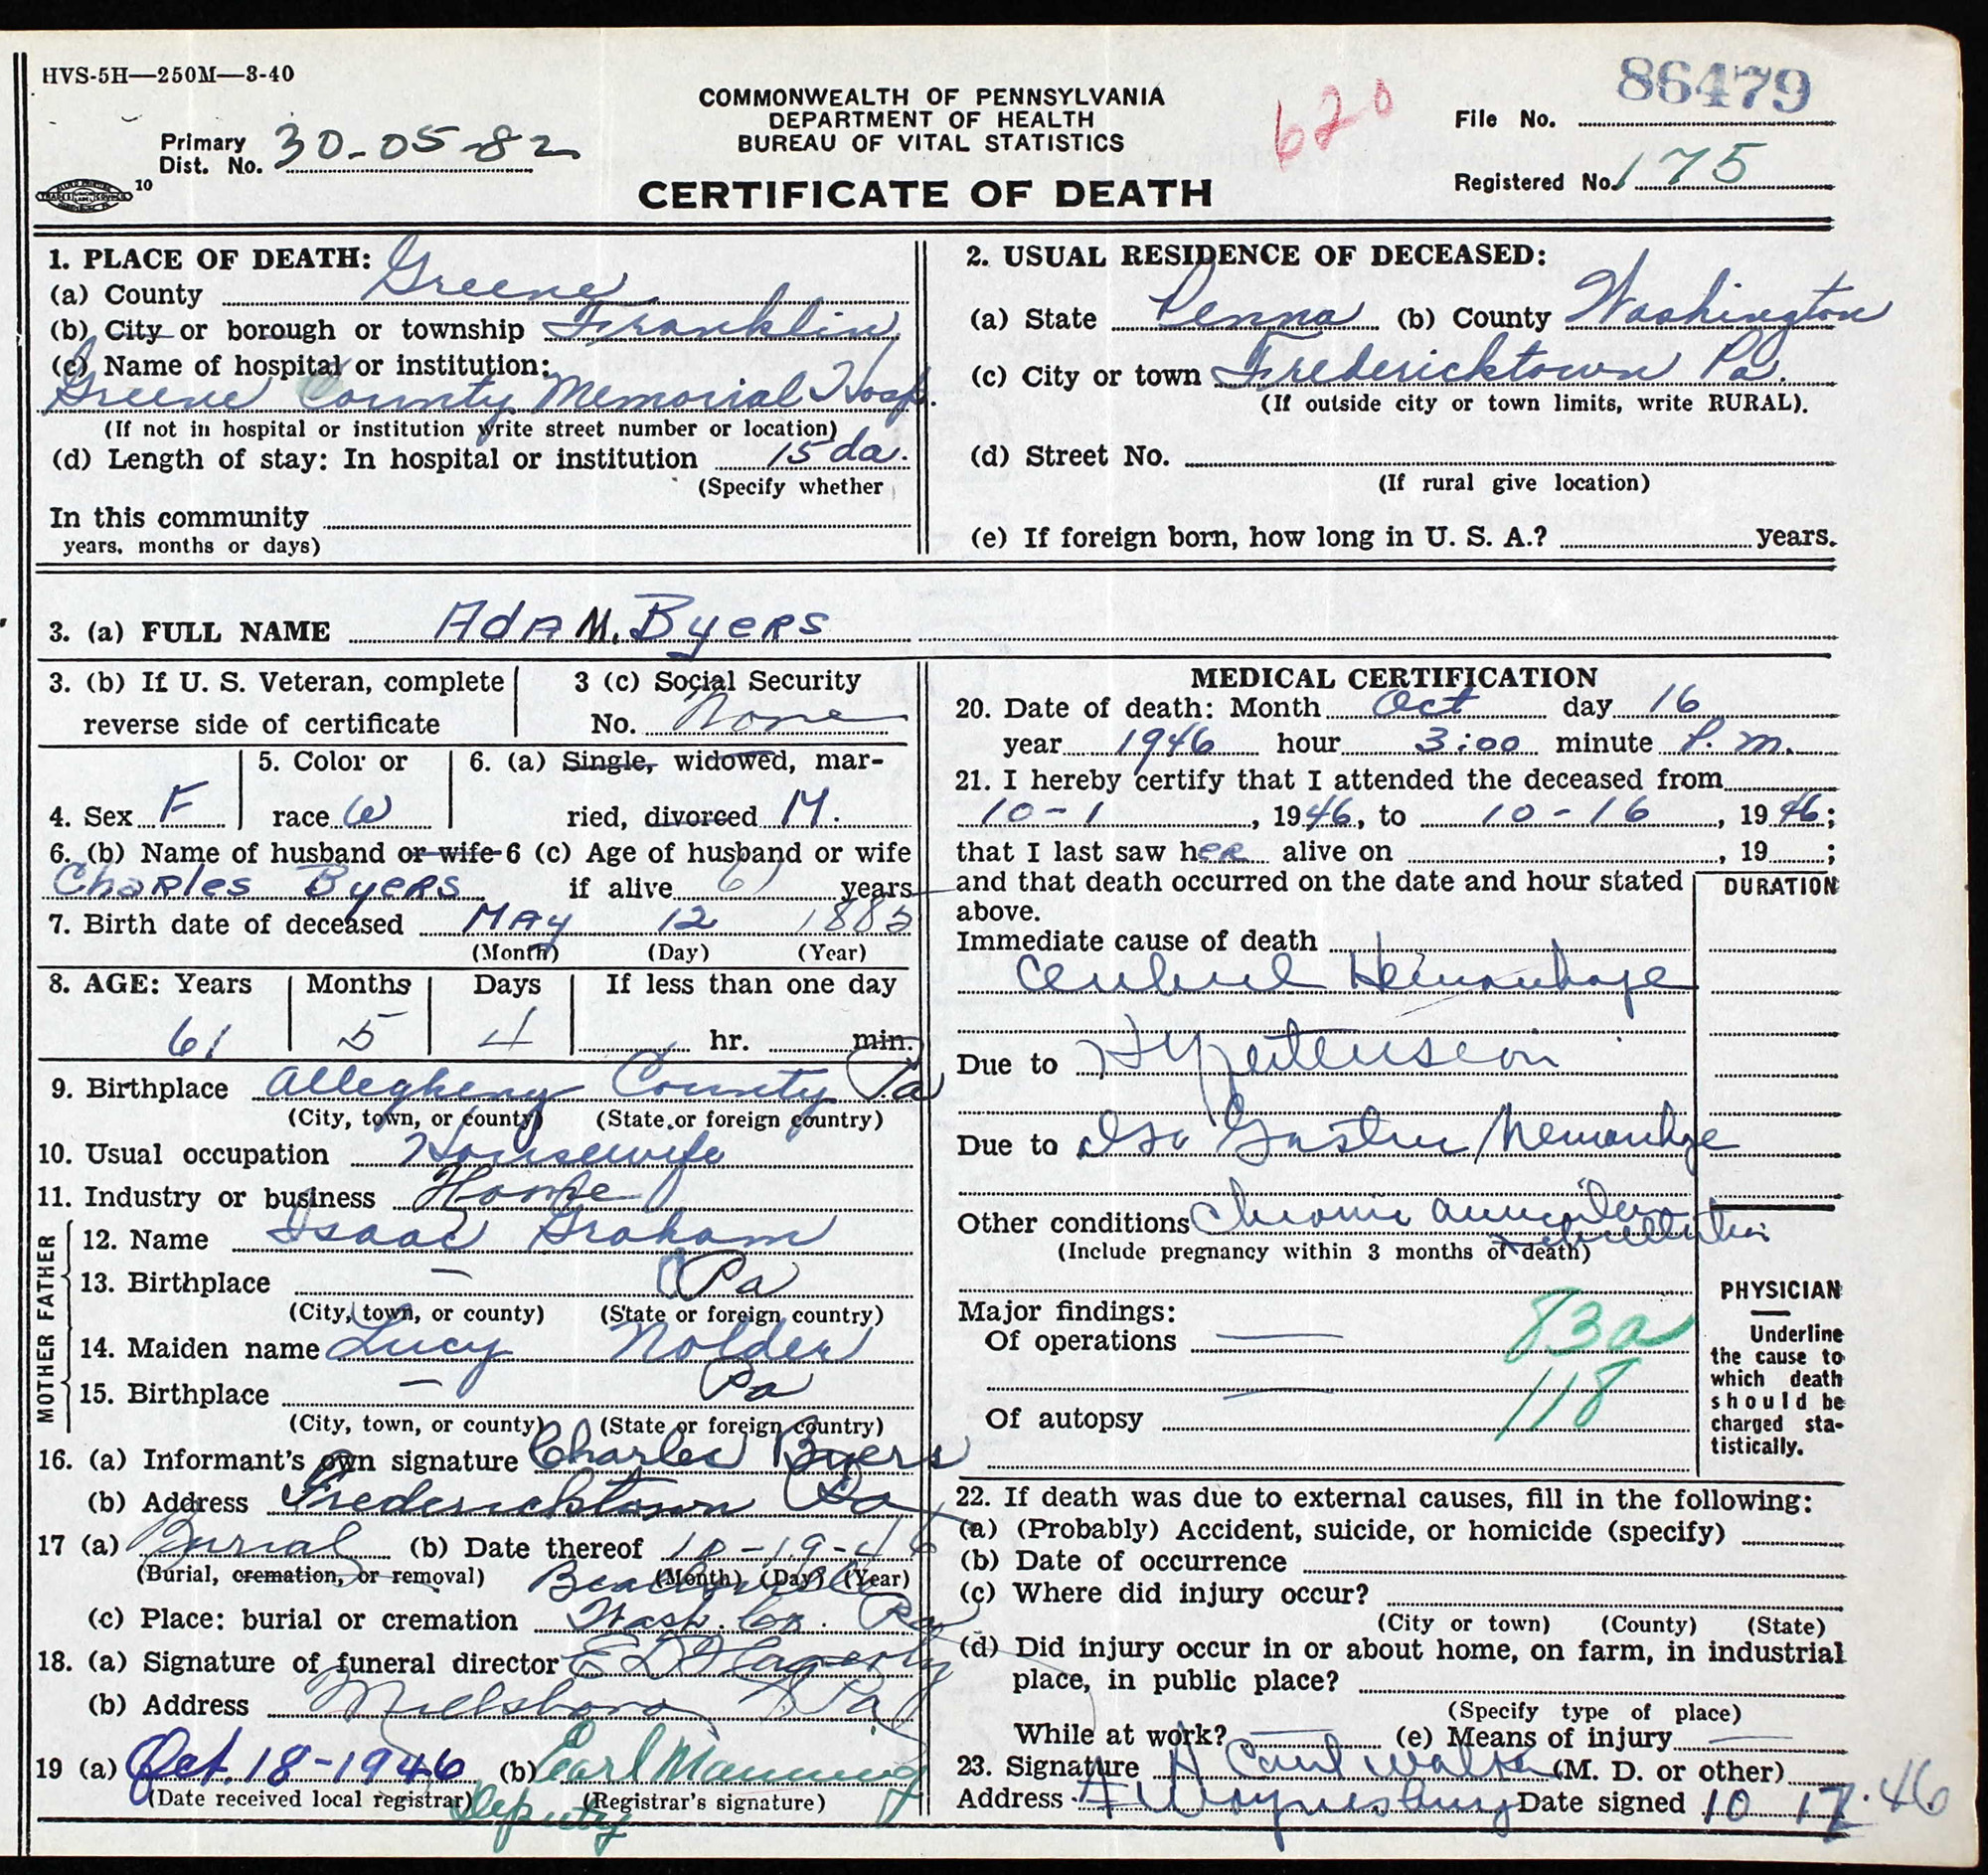 HVS-5H—250M—3-40
86479
COMMONWEALTH OF PENNSYLVANIA
DEPARTMENT OF HEALTH
BUREAU OF VITAL STATISTICS
620
File No.
Primary Dist. No. 30-05-82
10
CERTIFICATE OF DEATH
Registered No. 175
1. PLACE OF DEATH:
(a) County Greene
(b) City or borough or township Franklin
(c) Name of hospital or institution:
Greene County Memorial Hosp.
(If not in hospital or institution write street number or location)
(d) Length of stay: In hospital or institution 15 da.
(Specify whether
In this community
years, months or days)
2. USUAL RESIDENCE OF DECEASED:
(a) State Penna (b) County Washington
(c) City or town Fredericktown Pa.
(If outside city or town limits, write RURAL).
(d) Street No.
(If rural give location)
(e) If foreign born, how long in U. S. A.? years.
3. (a) FULL NAME Ada M. Byers
3. (b) If U. S. Veteran, complete
reverse side of certificate
3 (c) Social Security
No. None
4. Sex F
5. Color or
race W
6. (a) Single, widowed, mar-
ried, divorced M.
6. (b) Name of husband or wife
Charles Byers
6 (c) Age of husband or wife
if alive 61 years
7. Birth date of deceased May 12 1885
(Month) (Day) (Year)
8. AGE: Years Months Days If less than one day
61 5 4 hr. min.
9. Birthplace Allegheny County Pa
(City, town, or county) (State or foreign country)
10. Usual occupation Housewife
11. Industry or business Home
FATHER
12. Name Isaac Graham
13. Birthplace — Pa
(City, town, or county) (State or foreign country)
MOTHER
14. Maiden name Lucy Nolder
15. Birthplace — Pa
(City, town, or county) (State or foreign country)
16. (a) Informant's own signature Charles Byers
(b) Address Fredericktown Pa
17 (a) Burial (b) Date thereof 10-19-46
(Burial, cremation, or removal) (Month) (Day) (Year)
Beallsville
(c) Place: burial or cremation Wash. Co. Pa
18. (a) Signature of funeral director E D Hagerty
(b) Address Millsboro Pa
19 (a) Oct. 18-1946 (b) Earl Manning
(Date received local registrar) Deputy (Registrar's signature)
MEDICAL CERTIFICATION
20. Date of death: Month Oct day 16
year 1946 hour 3:00 minute P. m.
21. I hereby certify that I attended the deceased from
10-1, 1946, to 10-16, 1946;
that I last saw her alive on , 19 ;
and that death occurred on the date and hour stated
above.
DURATION
Immediate cause of death
Cerebral Hemorrhage
Due to Hypertension
Due to Gastric Hemorrhage
Other conditions Chronic auricular
fibrillation
(Include pregnancy within 3 months of death)
Major findings:
Of operations —
83a
118
Of autopsy
PHYSICIAN
Underline
the cause to
which death
should be
charged sta-
tistically.
22. If death was due to external causes, fill in the following:
(a) (Probably) Accident, suicide, or homicide (specify)
(b) Date of occurrence
(c) Where did injury occur?
(City or town) (County) (State)
(d) Did injury occur in or about home, on farm, in industrial
place, in public place?
(Specify type of place)
While at work? — (e) Means of injury —
23. Signature Paul Walker (M. D. or other)
Address Waynesburg Date signed 10 17 · 46